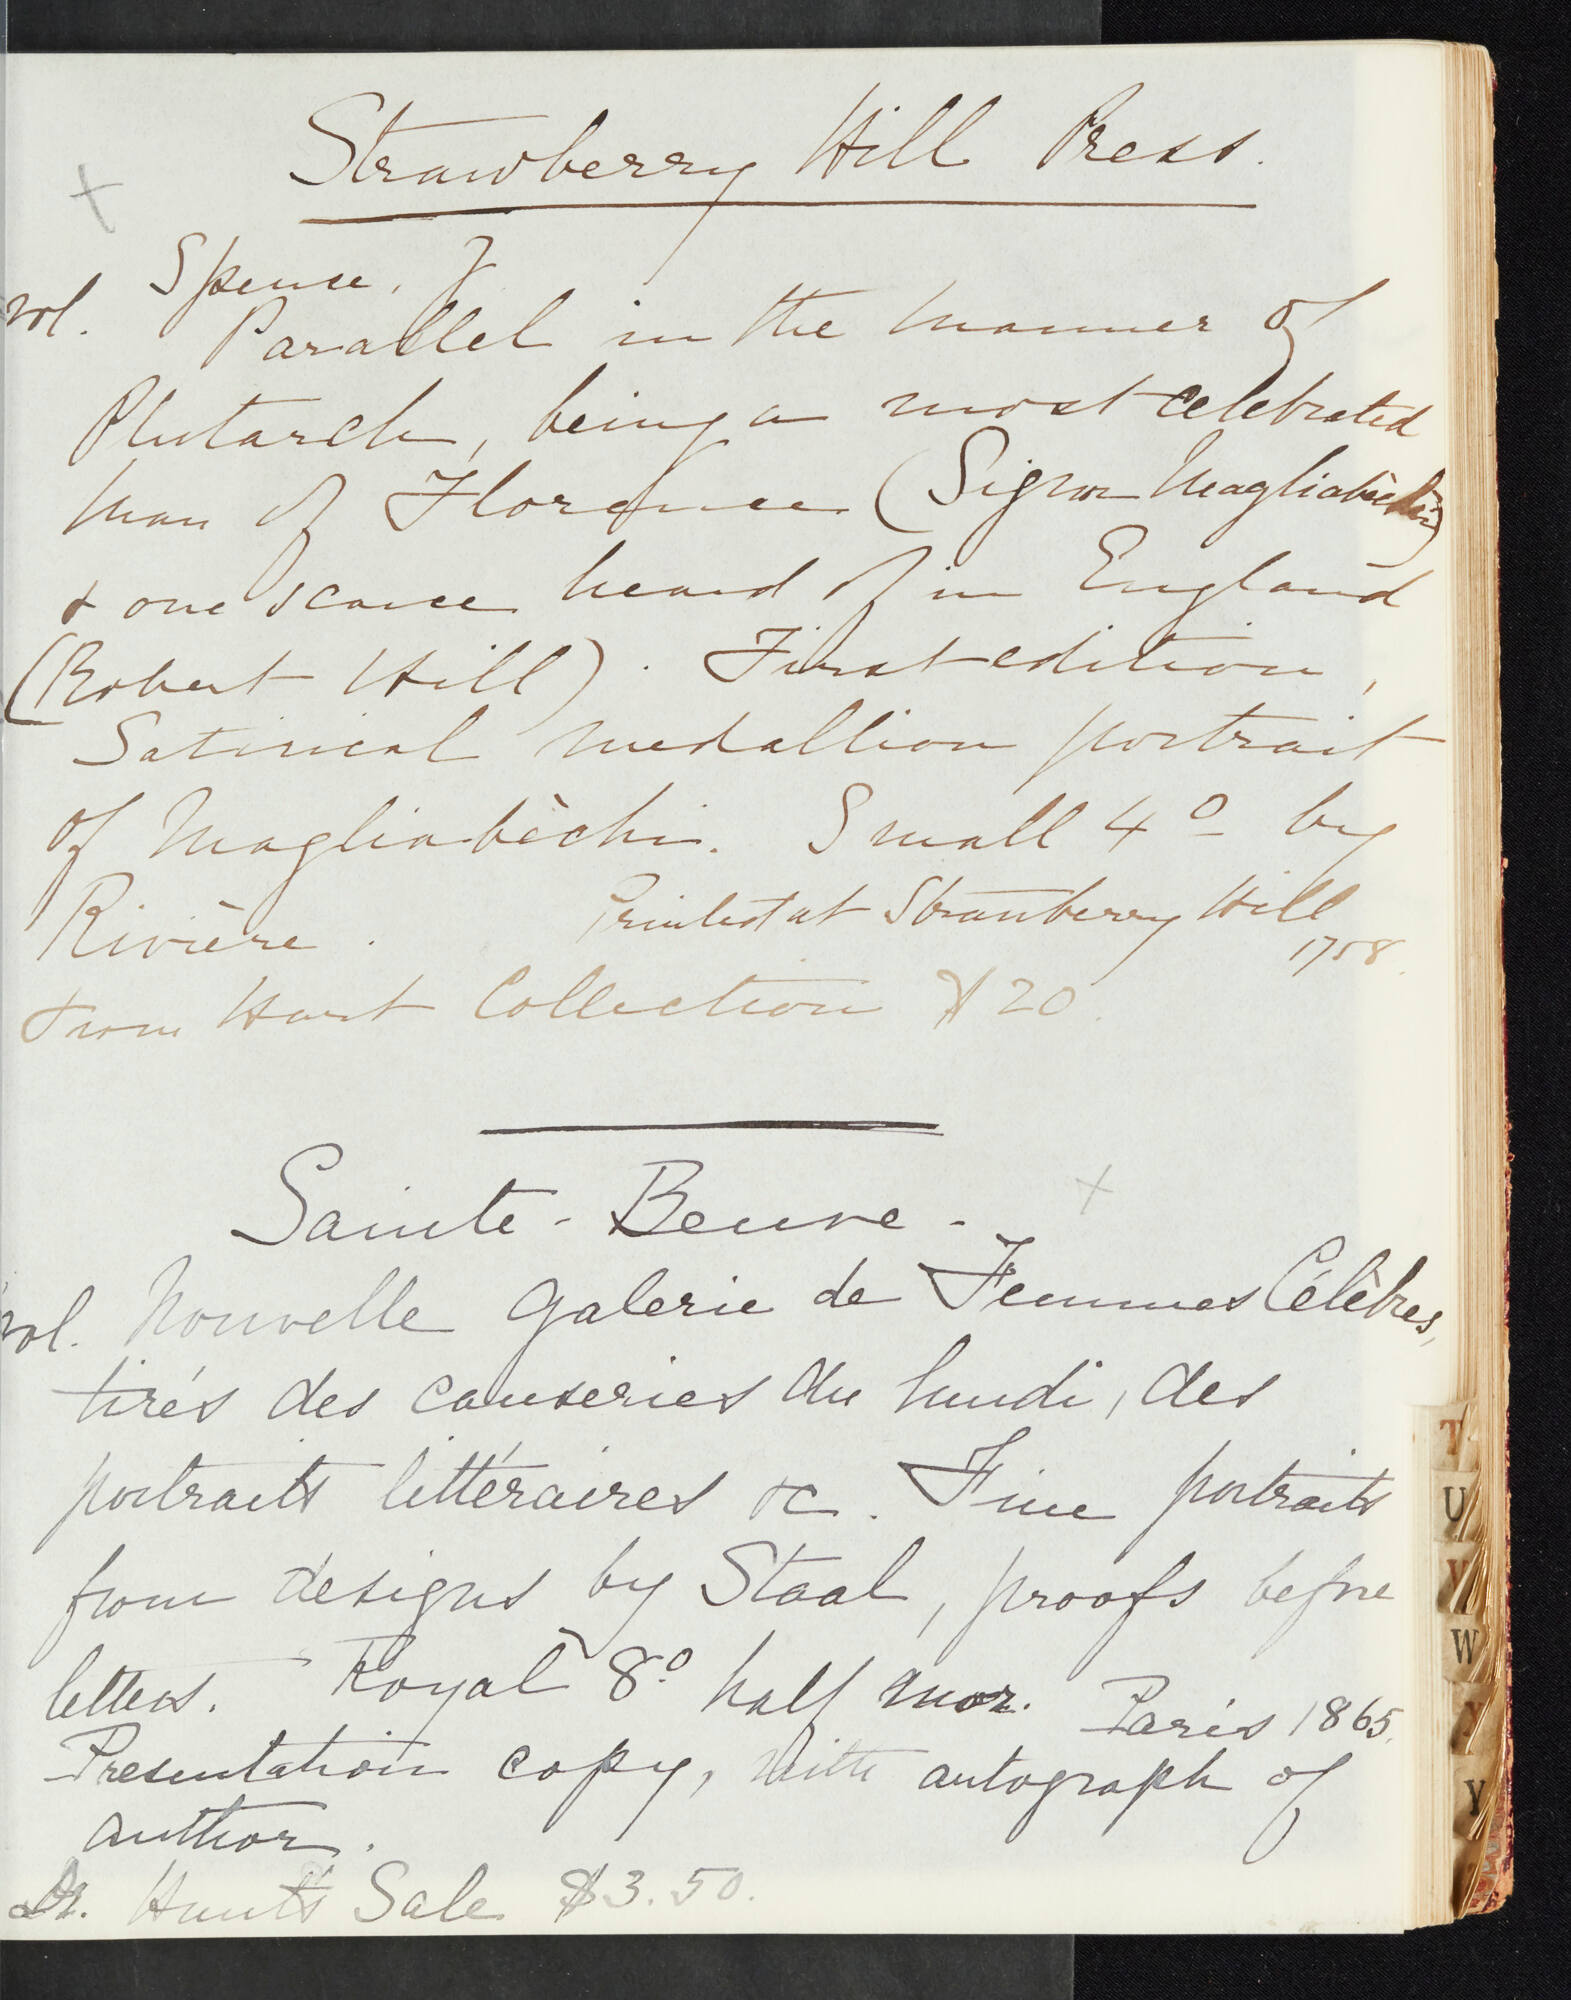 Strawberry Hill Press.
Spence, J
vol. Parallel in the manner of
Plutarch, being a most celebrated
man of Florence (Signor Magliabèchi)
& one scarce heard of in England
(Robert Hill). First edition,
Satirical medallion portrait
of Magliabèchi. Small 4o by
Rivière. Printed at Strawberry Hill
1758.
From Hart Collection $20.
Sainte-Beuve-
vol. Nouvelle Galerie de Femmes Célèbres,
tirés des causeries du lundi, des
portraits littéraires &c. Fine portraits
from designs by Staal, proofs before
letters. Royal 8o half mor. Paris 1865.
Presentation copy, with autograph of
author.
Dr. Hunt's Sale $3.50.
T
U
V
W
X
Y